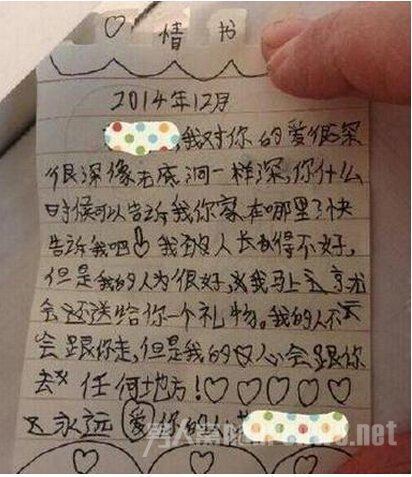 ♡情书
2014年12月
我对你的爱很深
很深像无底洞一样深,你什么
时候可以告诉我你家在哪里?快
告诉我吧 我本人长得不好,
但是我的人为很好,我马上
会还送给你一个礼物。我的人不
会跟你走,但是我的心会跟你
去 任何地方!♡♡♡♡♡
永远爱你的